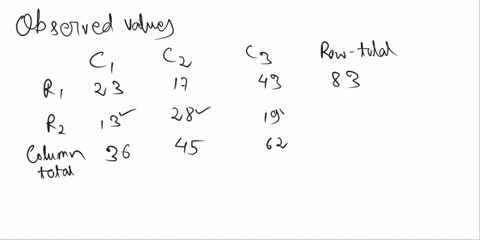 Observed values
C1 C2 C3 Row-total
R1 23 17 43 83
R2 13✓ 28✓ 19
Column total 36 45 62